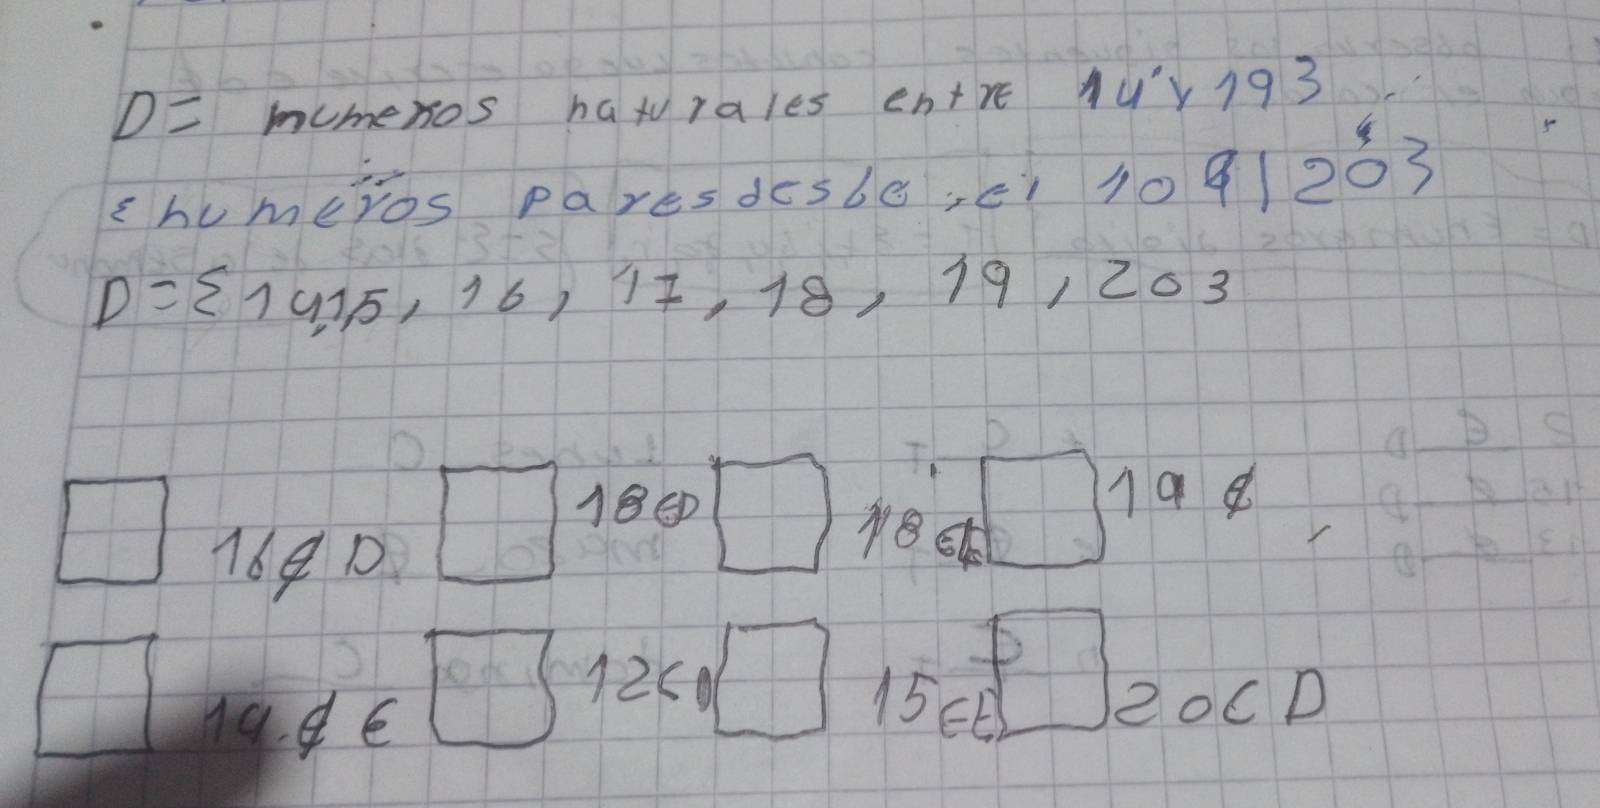 D= numeros naturales entre 14 y 19}
{ numeros pares desde el 10 al 20}
D={14,15, 16, 17, 18, 19, 20}
16∉ D 18∈D 18∈E 19 ∉
14.∉ E 12∈D 15∈E 20∈ D